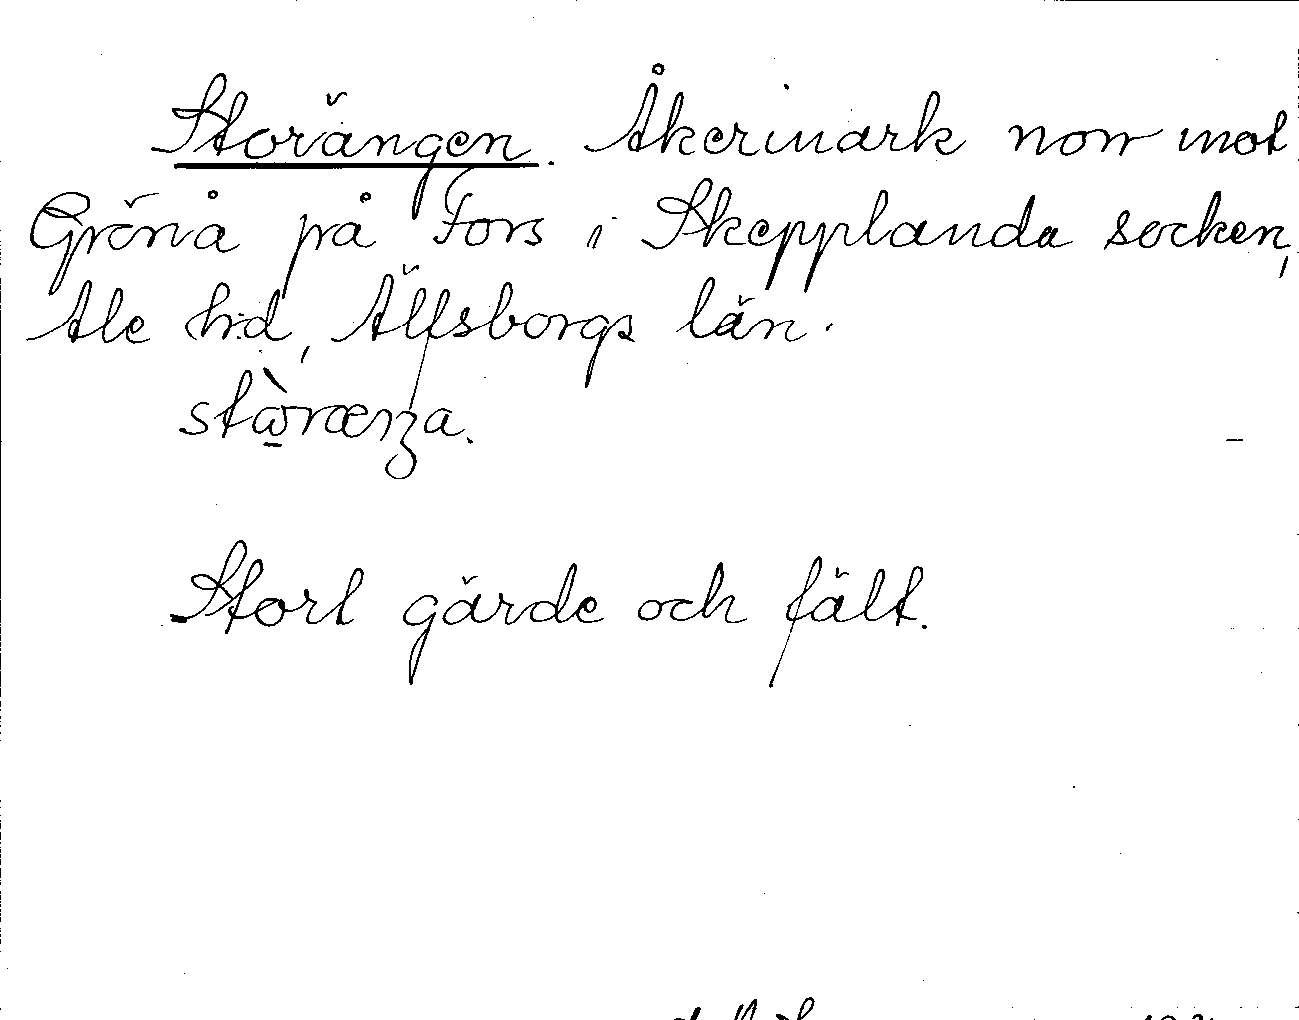 Storängen. Åkermark norr mot
Grönå på Fors i Skepplanda socken,
Ale hd, Älfsborgs län.
Stort gärde och fält.